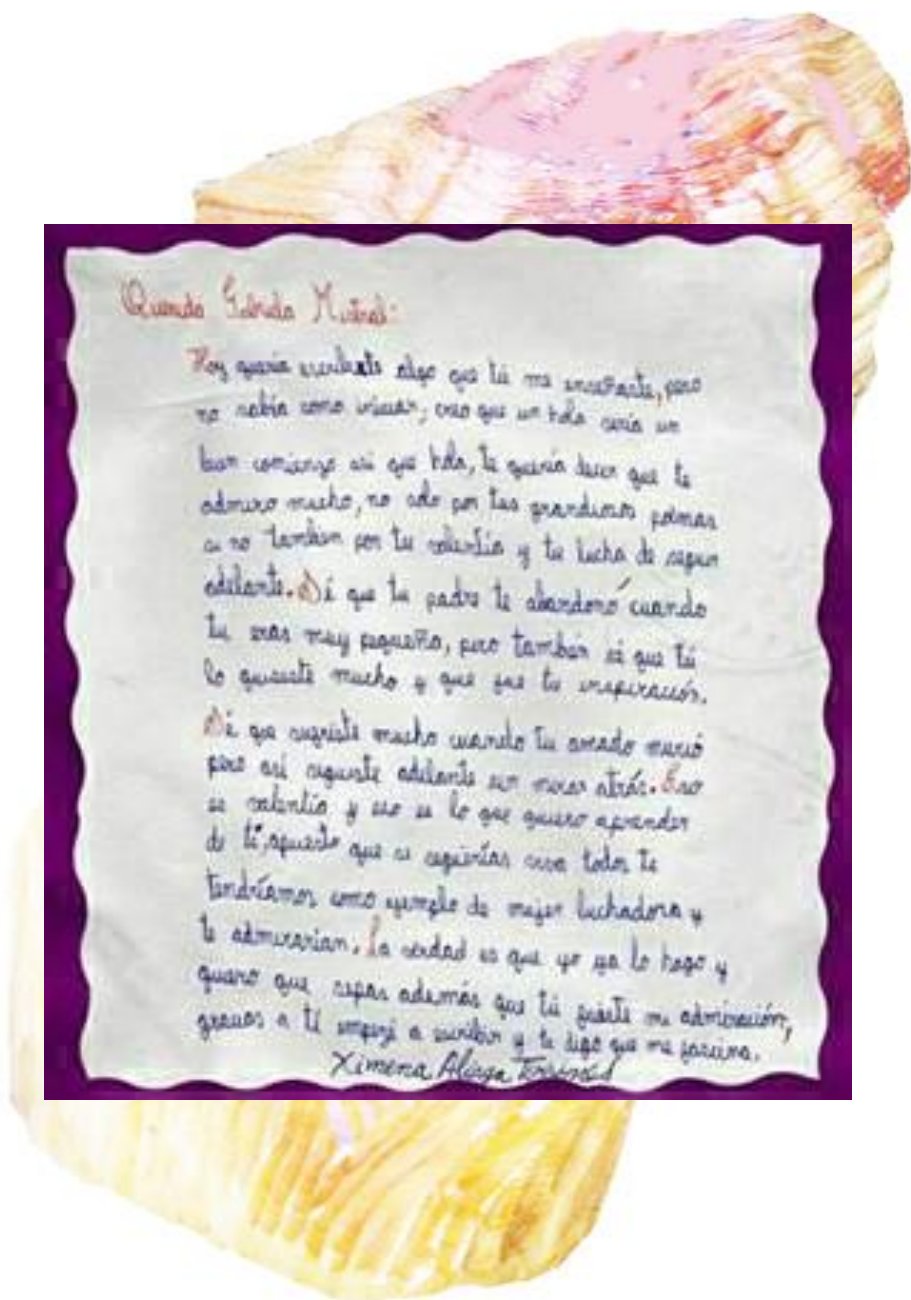 Querida Gabriela Mistral:
Hoy quería escribirte algo que tú me enseñaste, pero
no sabía como iniciar, creo que un hola sería un
buen comienzo asi que hola, te quería decir que te
admiro mucho, no solo por tus grandiosos poemas
si no tambien por tu valentía y tu lucha de seguir
adelante. Sé que tu padre te abandonó cuando
tu eras muy pequeña, pero también sé que tú
lo quisiste mucho y que fue tu inspiración.
Sé que sufriste mucho cuando tu amado murió
pero así seguiste adelante sin mirar atrás. Eso
es valentía y eso es lo que quiero aprender
de ti, apuesto que si seguirías viva todos te
tendríamos como ejemplo de mujer luchadora y
te admirarían. La verdad es que yo ya lo hago y
quiero que sepas además que tú fuiste mi admiración,
gracias a tí empezé a escribir y te digo que me fascina.
Ximena Aliaga